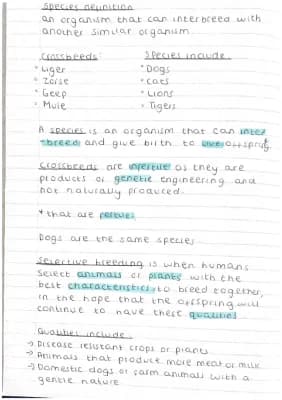 Species definition
an organism that can interbreed with
another similar organism
Crossbreeds:
Species include
° Liger
° Dogs
° Zorse
° Cats
° Geep
° Lions
° Mule
° Tigers
A species is an organism that can inter
-breed and give birth to live offspring.
Crossbreeds are infertile as they are
products of genetic engineering and
not naturally produced.
* that are fertile.
Dogs are the same species
Selective breeding is when humans
select animals or plants with the
best characteristics to breed together,
in the hope that the offspring will
continue to have these qualities
Qualities include
→ Disease resistant crops or plants
→ Animals that produce more meat or milk
→ Domestic dogs or farm animals with a
gentle nature